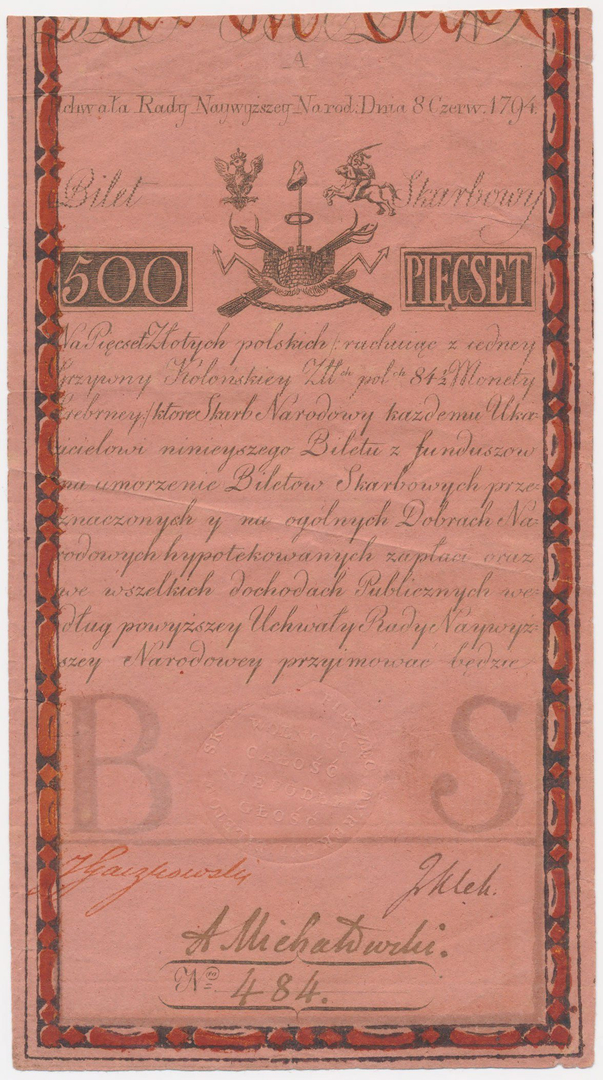 A
Uchwała Rady Naywyższey Narod: Dnia 8 Czerw. 1794.
Bilet Skarbowy
500 PIĘCSET
Na Pięcset Złotych polskich /: rachuiąc z iedney
Grzywny Kolońskiey Ztł ch pol ch 84½ Monety
Srebrney :/ ktore Skarb Narodowy każdemu Uka-
zicielowi ninieyszego Biletu z funduszow
na umorzenie Biletow Skarbowych prze-
znaczonych y na ogólnych Dobrach Na-
rodowych hypotekowanych zapłaci oraz
we wszelkich dochodach Publicznych we-
dług powyższey Uchwały Rady Naywyż-
szey Narodowey przyimować będzie
B S
WOLNOŚĆ
CAŁOŚĆ
NIEPODL
GŁOŚĆ
J Gaczkowski
J Klek.
A Michałowski.
Nro 484.